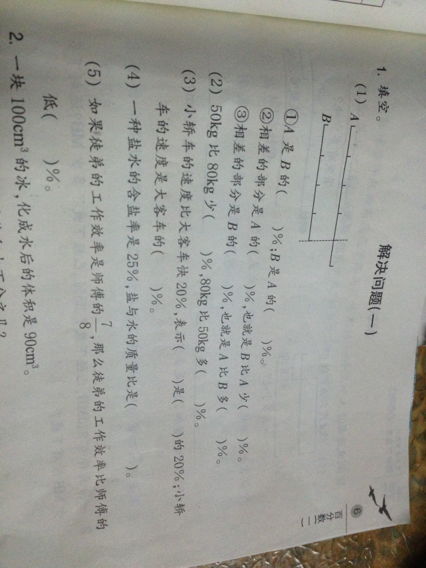 ⑥ 百分数(二)
解决问题(一)
1. 填空。
(1) A
B
①A 是 B 的(  )%;B 是 A 的(  )%。
②相差的部分是 A 的(  )%,也就是 B 比 A 少(  )%。
③相差的部分是 B 的(  )%,也就是 A 比 B 多(  )%。
(2) 50kg 比 80kg 少(  )%,80kg 比 50kg 多(  )%。
(3) 小轿车的速度比大客车快 20%,表示(  )是(  )的 20%;小轿
车的速度是大客车的(  )%。
(4) 一种盐水的含盐率是 25%,盐与水的质量比是(  )。
(5) 如果徒弟的工作效率是师傅的7/8,那么徒弟的工作效率比师傅的
低(  )%。
2. 一块 100cm³ 的冰,化成水后的体积是 90cm³。